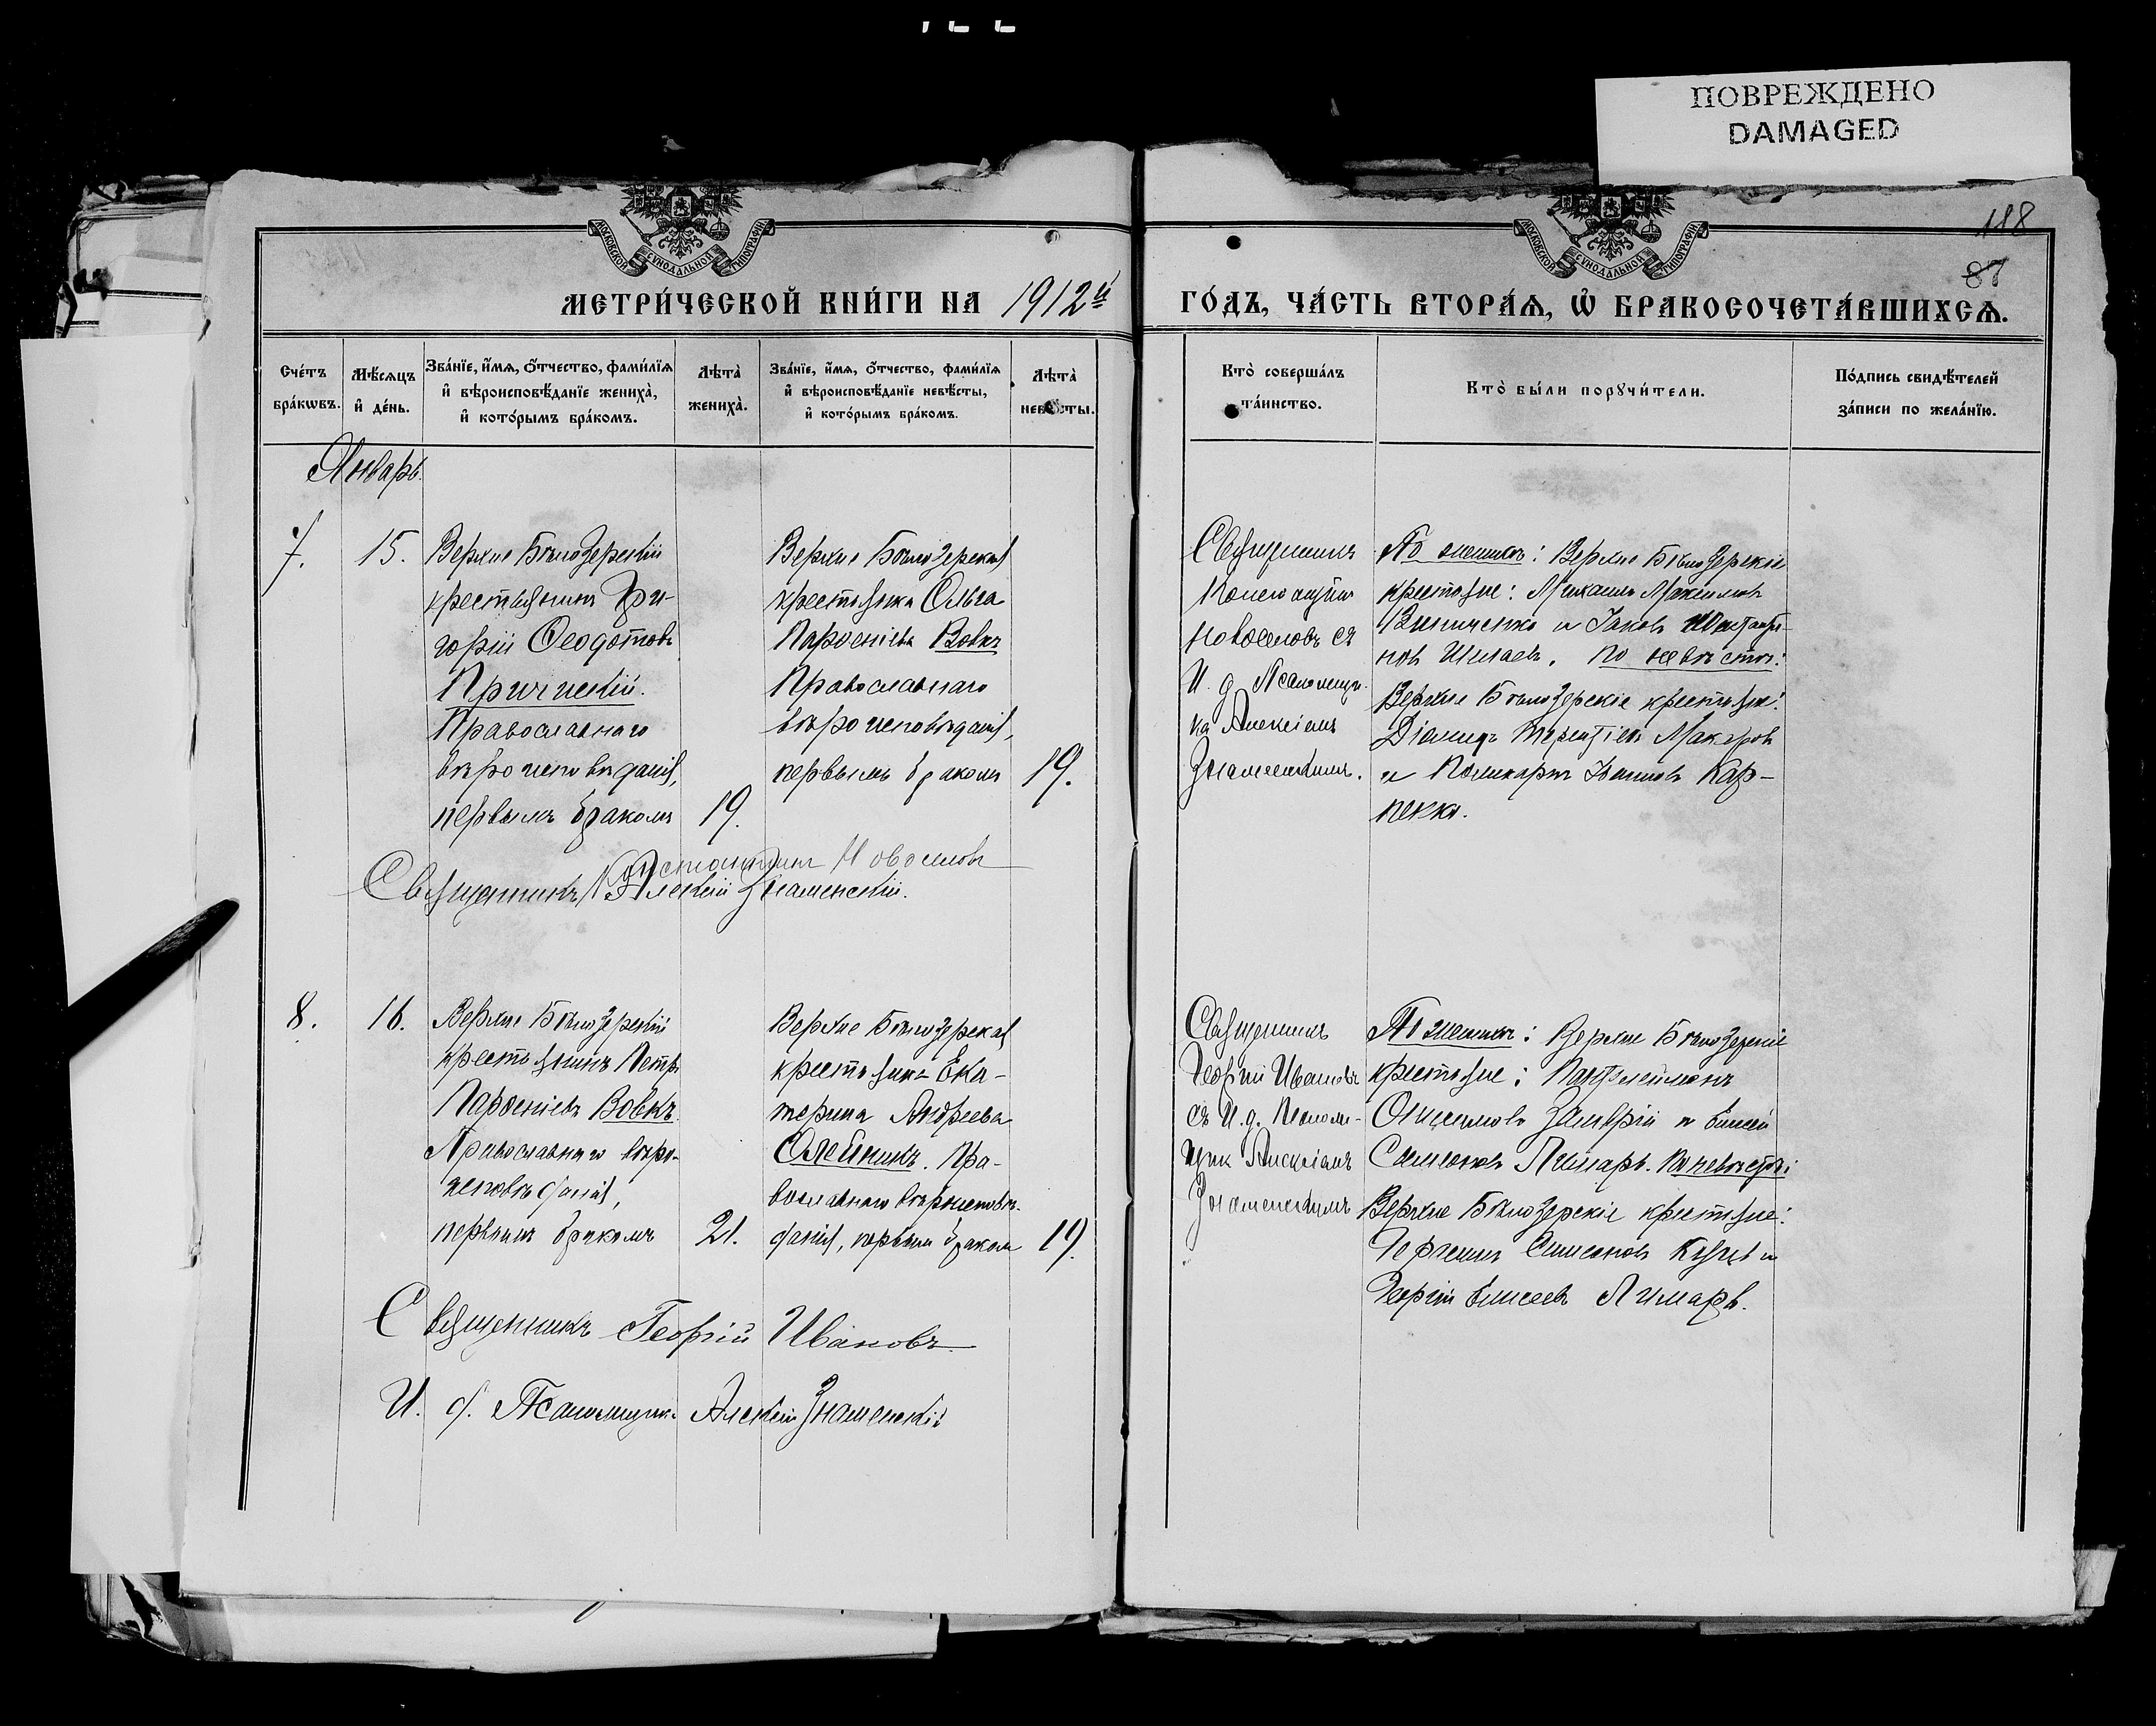 ПОВРЕЖДЕНО
DAMAGED
188
87
МОСКОВСКОЙ СѴНОДАЛЬНОЙ ТИПОГРАФІИ
МОСКОВСКОЙ СѴНОДАЛЬНОЙ ТИПОГРАФІИ
МЕТРИ́ЧЕСКОЙ КНИ́ГИ НА 1912й
ГО́ДЪ, ЧА́СТЬ ВТОРА́Ѧ, Ѡ҆ БРАКОСОЧЕТА́ВШИХСѦ.
Сче́тъ
бра́кѡвъ.
Мѣ́сѧцъ
и҆ де́нь.
Зва́нїе, и҆́мѧ, ѻ҆́тчество, фами́лїѧ
и҆ вѣроисповѣ́данїе жениха̀,
и҆ кото́рымъ бра́комъ.
Лѣта̀
жениха̀.
Зва́нїе, и҆́мѧ, ѻ҆́тчество, фами́лїѧ
и҆ вѣроисповѣ́данїе невѣ́сты,
и҆ кото́рымъ бра́комъ.
Лѣта̀
невѣ́сты.
Кто̀ соверша́лъ
та́инство.
Кто̀ бы́ли порꙋчи́тели.
По́дпись свидѣ́телей
за́писи по жела́нїю.
Январь.
7.
15.
Верхне Бѣлозерскій
крестьянинъ Гри-
горій Ѳеодотовъ
Православнаго
вѣроисповѣданія,
первымъ бракомъ
19.
Верхне Бѣлозерская
крестьянка Ольга
Парѳеніева Вовкъ
Православнаго
вѣроисповѣданія,
первымъ бракомъ
19.
Священникъ
Новоселовъ съ
И. д. Псаломщи-
ка Алексіемъ
Знаменскимъ.
По женихѣ: Верхне Бѣлозерскіе
крестьяне: Михаилъ Максимовъ
Винниченко и Іаковъ
По невѣстѣ:
Верхне Бѣлозерскіе крестьяне:
Діомидъ Терентіевъ Макаровъ
и Поликарпъ Ивановъ Кар-
пенко.
Священникъ Константинъ Новоселовъ
Алексій Знаменскій.
8.
16.
Верхне Бѣлозерскій
крестьянинъ Петръ
Парѳеніевъ Вовкъ.
Православнаго вѣро-
исповѣданія,
первымъ бракомъ
21.
Верхне Бѣлозерская
крестьянка Ека-
терина Андреева
Олейникъ. Пра-
вославнаго вѣроисповѣ-
данія, первымъ бракомъ
19.
Священникъ
Георгій Ивановъ
съ И. д. Псалом-
щика Алексіемъ
Знаменскимъ
По женихѣ: Верхне Бѣлозерскіе
крестьяне: Пантелеимонъ
Онисимовъ и Елисей
Симеоновъ Лимарь. По невѣстѣ:
Верхне Бѣлозерскіе крестьяне:
Симеоновъ и
Георгій Елисеевъ Лимарь.
Священникъ Георгій Ивановъ
И. д. Псаломщика Алексій Знаменскій